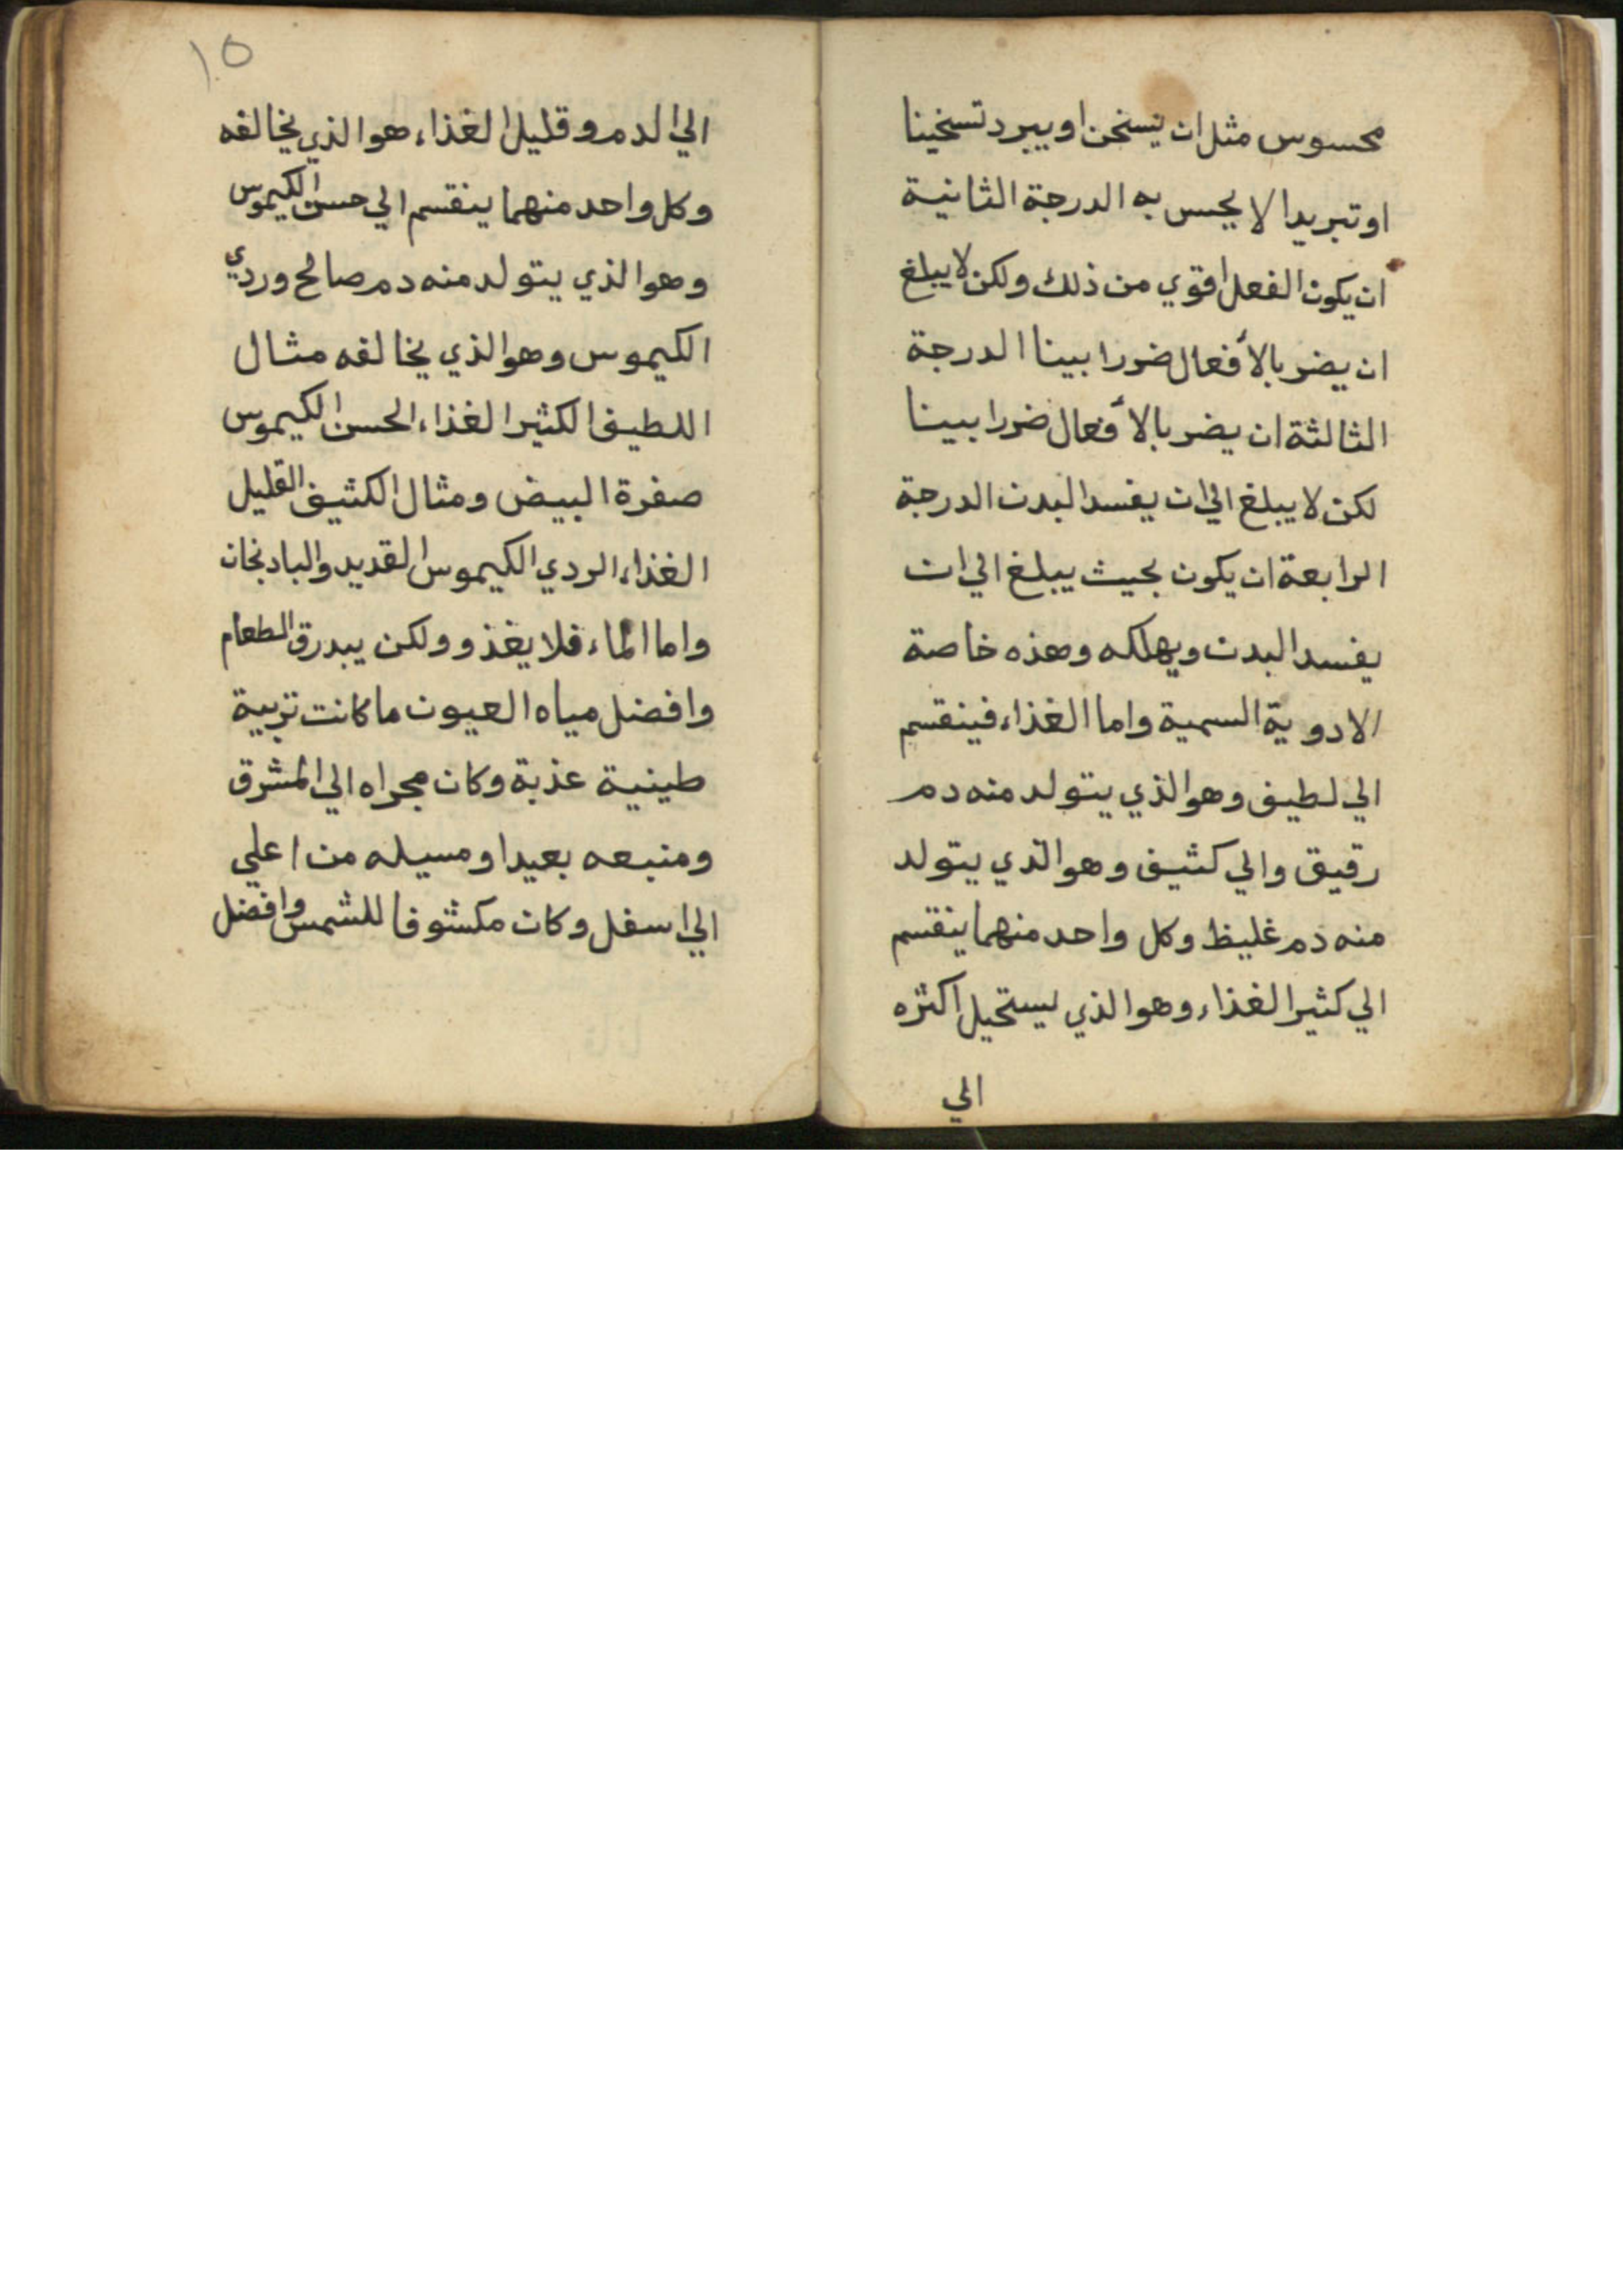 محسوس مثل ان يسخن او يبرد تسخينا
او تبريدا لا يحس به الدرجة الثانية
ان يكون الفعل اقوي من ذلك ولكن لا يبلغ
ان يضر بالأفعال ضررا بينا الدرجة
الثالثة ان يضر بالأفعال ضررا بينا
لكن لا يبلغ الي ان يفسد البدن الدرجة
الرابعة ان يكون بحيث يبلغ الي ان
يفسد البدن ويهلكه وهذه خاصة
الادوية السمية واما الغذاء فينقسم
الي لطيف وهو الذي يتولد منه دم
رقيق والي كثيف وهو الذي يتولد
منه دم غليظ وكل واحد منهما ينقسم
الي كثير الغذاء وهو الذي يستحيل اكثره
الي
١٥
الي الدم وقليل الغذاء هو الذي يخالفه
وكل واحد منهما ينقسم الي حسن الكيموس
وهو الذي يتولد منه دم صالح وردي
الكيموس وهو الذي يخالفه مثال
اللطيف الكثير الغذاء الحسن الكيموس
صفرة البيض ومثال الكثيف القليل
الغذاء الردي الكيموس القديد والبادنجان
واما الماء فلا يغذو ولكن يبدرق الطعام
وافضل مياه العيون ما كانت تربية
طينية عذبة وكان مجراه الي المشرق
ومنبعه بعيدا ومسيله من اعلي
الي اسفل وكان مكشوفا للشمس وافضل